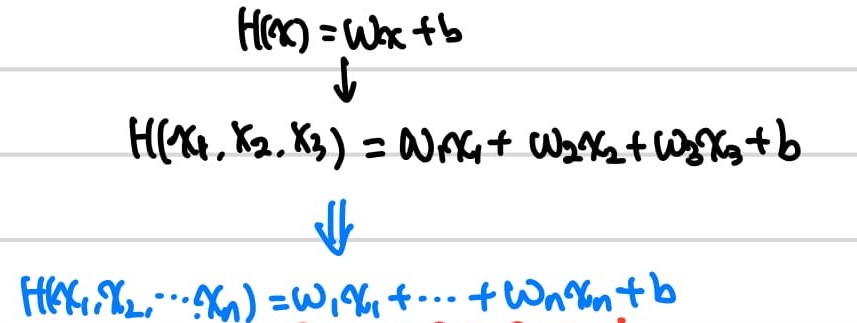 H(x) = Wx + b
↓
H(x₁, x₂, x₃) = w₁x₁ + w₂x₂ + w₃x₃ + b
⇓
H(x₁, x₂, ... xₙ) = w₁x₁ + ... + wₙxₙ + b